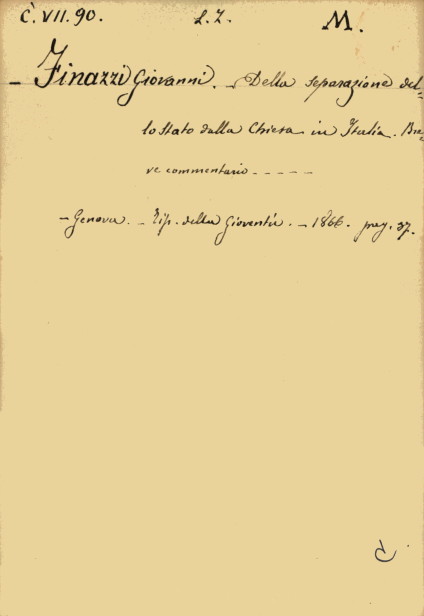 Č. VII. 90. L. Z. M.
– Finazzi Giovanni. – Della separazione del=
lo Stato dalla Chiesa in Italia. Bre=
ve commentario – – – – –
– Genova. – Tip. della Gioventù. – 1866. pag. 37.